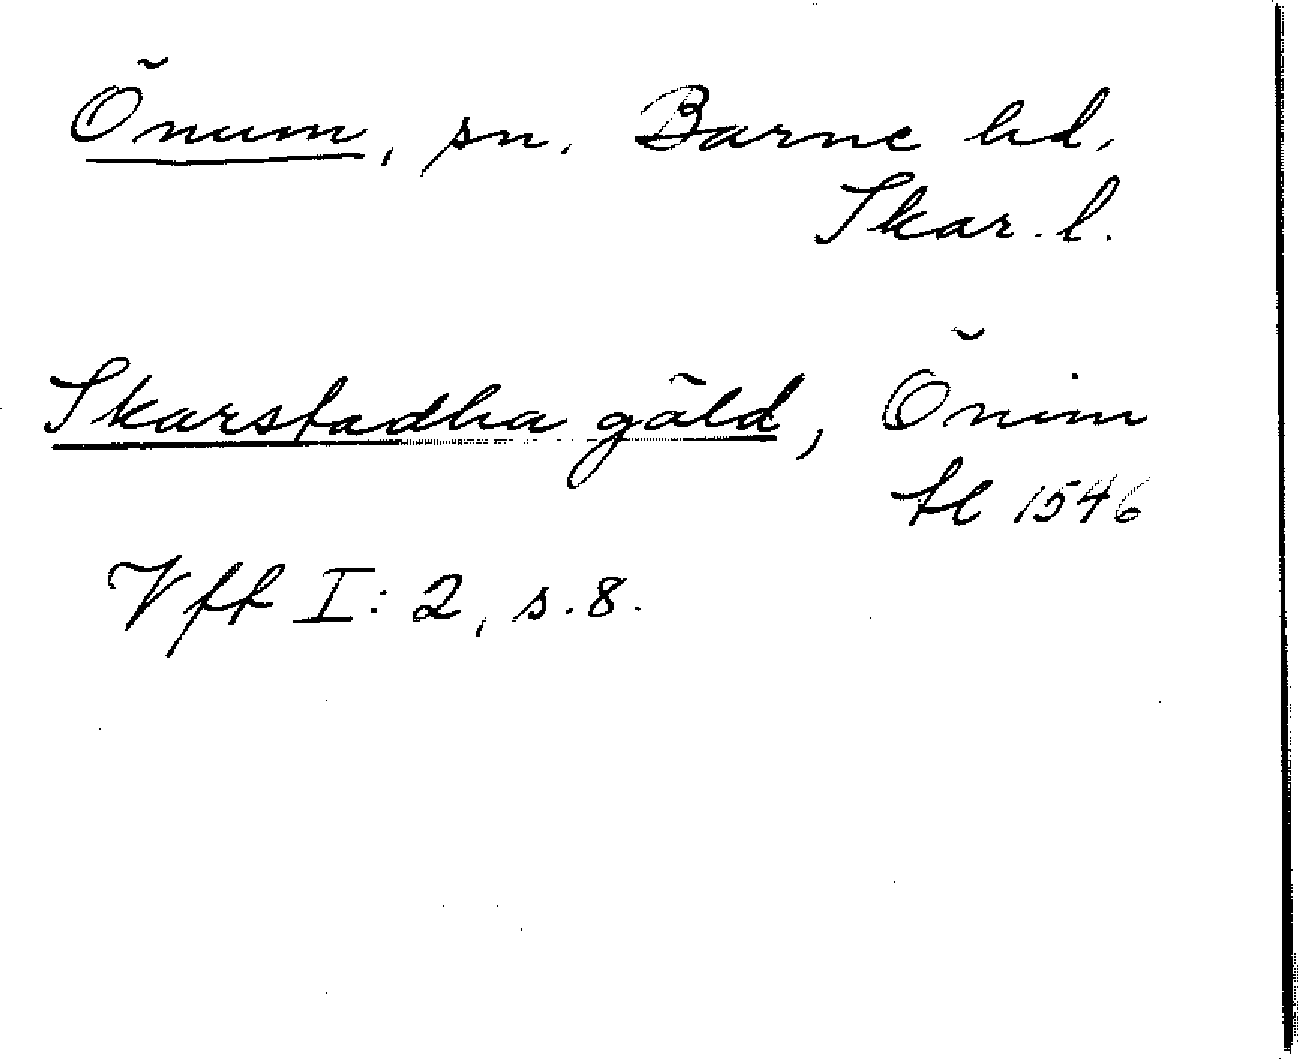 Önum, sn. Barne hd.
Skar. l.
Skarstadha gäld, Önim
tl 1546
Vff I: 2, s. 8.